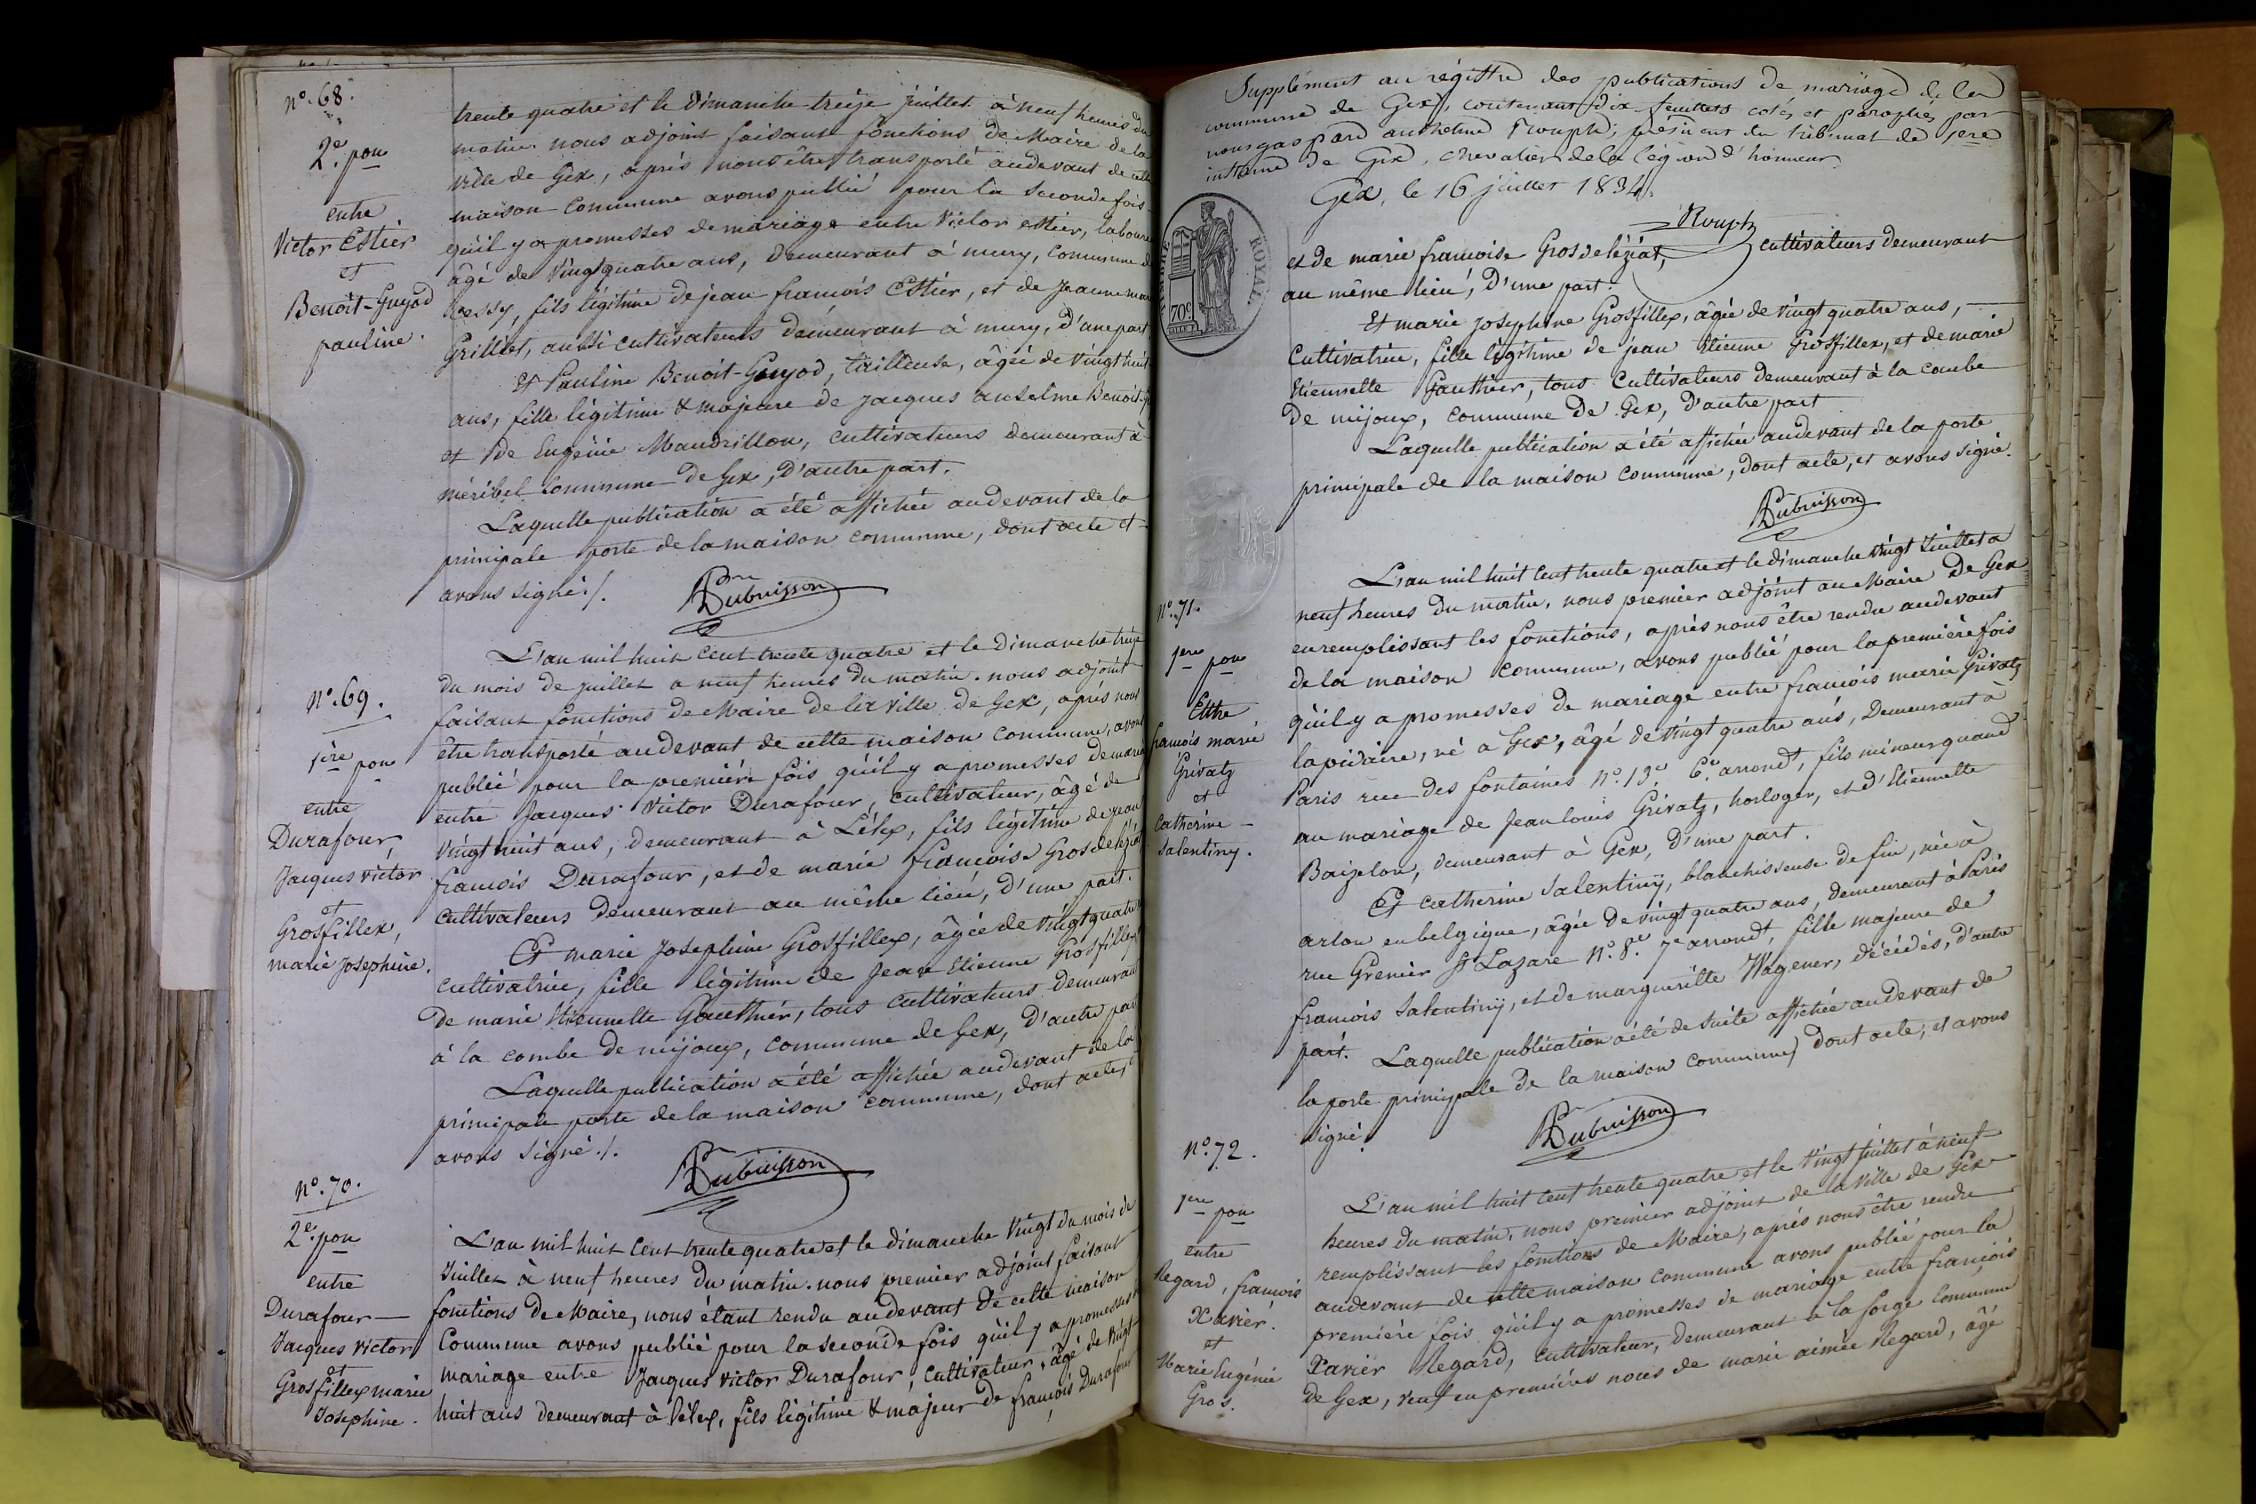 n.° 68.
2.e pon
entre
Victor Estier
et
Benoit-Guyod
pauline.
trente quatre et le dimanche treize juillet à neuf heures du
matin. nous adjoint faisant fonctions de Maire de la
ville de Gex, après nous être transporté audevant de cette
maison commune avons publié pour la seconde fois
qu'il y a promesses de mariage entre Victor estier, laboure
âgé de Vingt quatre ans, demeurant à mury, Commune d
fils légitime de jean francois Estier, et de Jeanne mar
Grilliet, aussi cultivateurs demeurant à mury, d'une part
Et Pauline Benoit-Gouyod, tailleuse, âgée de vingt huit
ans, fille légitime & majeure de Jacques anselme Benoit-g
et de Eugénie Mandrillon, cultivateurs demeurant à
méribel Commune de Gex, d'autre part.
Laquelle publication a été affichée audevant de la
principale porte de la maison commune, dont acte et
avons signé ./.
Dubuisson
N.° 69.
1ère pon
entre
Durafour,
Jacques victor
et
Grosfillex,
marie Josephine.
L'an mil huit Cent trente quatre et le Dimanche treize
du mois de juillet a neuf heures du matin. nous adjoint
faisant fonctions de Maire de la Ville de Gex, après nous
être transporté audevant de cette maison commune, avons
publié pour la première fois qu'il y a promesses de maria
entre Jacques Victor Durafour, cultivateur, âgé de
vingt huit ans, demeurant à Lélex, fils légitime de jean
francois Durafour, et de marie francoise Grosdeléziat
cultivateurs demeurant au même lieu, d'une part.
Et marie Josephine Grosfillex, âgée de Vingt quatre
cultivatrice, fille légitime de Jean Etienne Grosfillex
de marie Etiennette Gauthier, tous cultivateurs demeurant
à la combe de mijoux, commune de Gex, d'autre par
Laquelle publication a été affichée audevant de la
principale porte de la maison commune, dont acte,
avons signé ./.
Dubuisson
N.° 70.
2.e pon
entre
Durafour
Jacques Victor
et
Grosfillex marie
Josephine.
L'an mil huit Cent trente quatre et le dimanche Vingt du mois de
Juillet à neuf heures du matin. nous premier adjoint faisant
fonctions de Maire, nous étant rendu audevant de cette maison
Commune avons publié pour la seconde fois qu'il y a promesses
mariage entre Jacques victor Durafour, cultivateur, âgé de Vingt
huit ans demeurant à lélex, fils légitime & majeur de francois Durafour
Supplément au régistre des publications de mariage de la
commune de Gex, contenant dix feuillets cotés et paraphés par
nous gaspard anthelme Rouph, président du tribunal de 1ere
instance de Gex, chevalier de la légion d'honneur.
Gex, le 16 juillet 1834.
Rouph
ROYAL
70c
et de marie francoise Grosdeléziat, cultivateurs demeurant
au même lieu, d'une part.
Et marie josephine Grosfillex, âgée de vingt quatre ans,
Cultivatrice, fille légitime de jean Etienne Grosfillex, et de marie
Etiennette Gauthier, tous Cultivateurs demeurant à la combe
de mijoux, commune de Gex, d'autre part
Laquelle publication a été affichée audevant de la porte
principale de la maison commune, dont acte, et avons signé.
Dubuisson
N.° 71.
1ere pon
Entre
francois marie
Grivatz
et
Catherine
Salentiny.
L'an mil huit Cent trente quatre et le dimanche Vingt Juillet a
neuf heures du matin, nous premier adjoint au Maire De Gex
en remplissant les fonctions, après nous être rendu audevant
de la maison commune, avons publié pour la première fois
qu'il y a promesses de mariage entre francois marie Grivatz
lapidaire, né a Gex, âgé de Vingt quatre ans, Demeurant à
Paris rue des fontaines N.° 13. 6.e arrondt, fils mineur quand
au mariage de Jean louis Grivatz, horloger, et d'Etiennette
Baizelon, demeurant à Gex, d'une part.
Et catherine Salentinij, blanchisseuse de fin, née à
arlon en belgique, âgée de vingt quatre ans, demeurant à Paris
rue Grenier St Lazare N.° 8. 7e arrondt, fille majeure de
francois Salentinij, et de marguerite Wagener, décédés, d'autre
part.
Laquelle publication a été de suite affichée audevant de
la porte principale de la maison commune, dont acte; et avons
signé.
Dubuisson
N.° 72.
1ere pon
entre
Regard, francois
Xavier.
et
Marie Eugénie
Gros.
L'an mil huit Cent trente quatre et le Vingt juillet à neuf
heures du matin, nous premier adjoint de la Ville de Gex
remplissant les fonctions de Maire, après nous être rendu
audevant de cette maison commune avons publié pour la
première fois qu'il y a promesses de mariage entre francois
Xavier Regard, cultivateur, demeurant à la forge Commune
de Gex, veuf en premières noces de marie aimée Regard, âgé